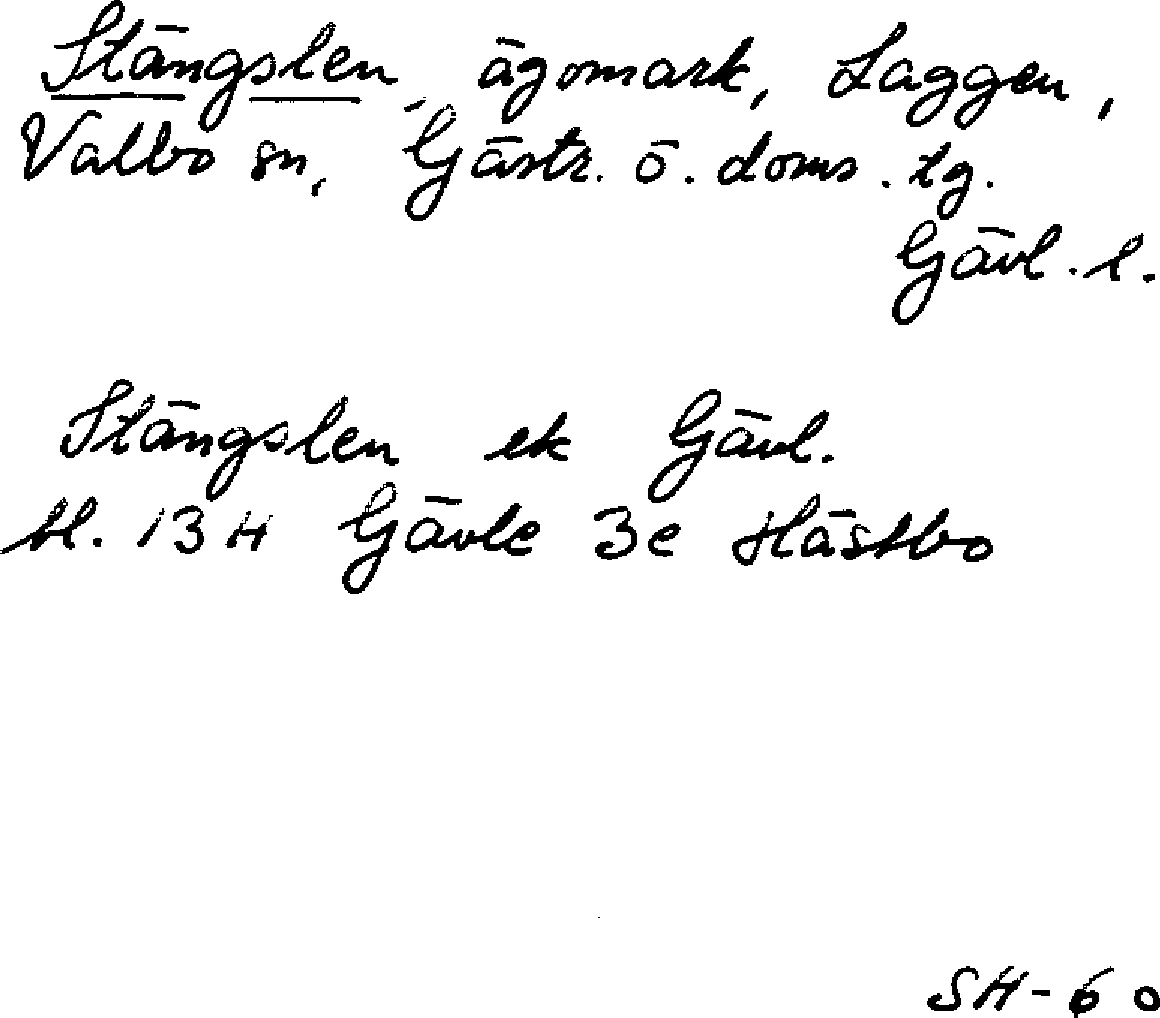 Stängslen, ägomark, Laggen,
Valbo sn, Gästr. ö. doms. tg.
Gävl. l.
Stängslen ek Gävl.
bl. 13 H Gävle 3e Hästbo
SH-60